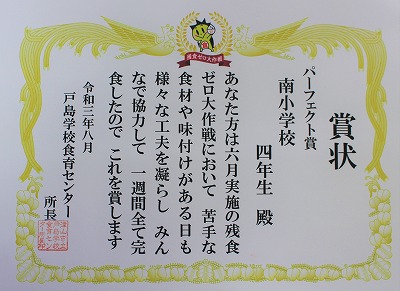 残食ゼロ大作戦
賞状
パーフェクト賞
南小学校
四年生 殿
あなた方は六月実施の残食
ゼロ大作戦において 苦手な
食材や味付けがある日も
様々な工夫を凝らし みん
なで協力して 一週間全て完
食したので これを賞します
令和三年八月
戸島学校食育センター
所長